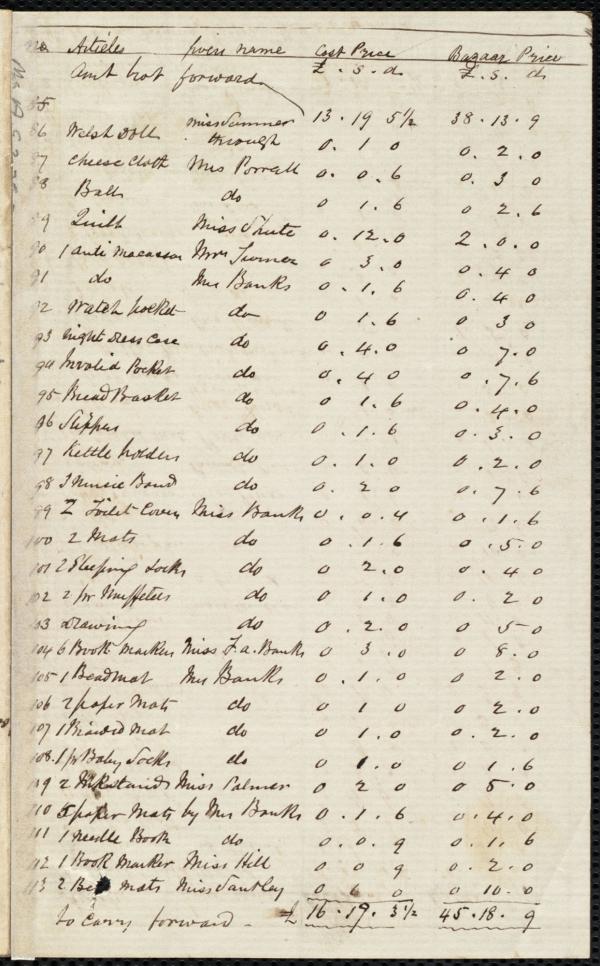 No. Articles given name Cost Price Bazaar Price
Amt brot forward £ . s . d £ . s . d
85 13 . 19 5½ 38 . 13 . 9
86 Welsh Doll Miss Sumner through 0 . 1 0 0 . 2 . 0
87 Cheese Cloth Mrs Porrall 0 . 0 . 6 0 . 3 0
88 Balls do 0 1 . 6 0 2 . 6
89 Quilt Miss Shute 0 . 12 . 0 2 . 0 . 0
90 1 anti macassar Mrs Turner 0 3 . 0 0 . 4 0
91 do Mrs Banks 0 . 1 . 6 0 . 4 0
92 Watch pocket do 0 1 . 6 0 3 0
93 night dress case do 0 . 4 . 0 0 7 . 0
94 Invalid Pocket do 0 . 4 0 0 . 7 . 6
95 Bread Basket do 0 1 . 6 0 . 4 . 0
96 Slippers do 0 . 1 . 6 0 . 3 . 0
97 Kettle holders do 0 . 1 . 0 0 . 2 . 0
98 3 Music Band do 0 . 2 0 0 . 7 . 6
99 2 Toilet Covers Miss Banks 0 . 0 . 4 0 . 1 . 6
100 2 Mats do 0 . 1 . 6 0 . 5 . 0
101 2 Sleeping Socks do 0 2 . 0 0 . 4 0
102 2 pr Muffetees do 0 1 . 0 0 . 2 0
103 Drawing do 0 . 2 . 0 0 5 0
104 6 Book markers Miss F. a. Banks 0 3 . 0 0 8 . 0
105 1 Beadmat Mrs Banks 0 . 1 . 0 0 2 . 0
106 2 paper Mats do 0 1 0 0 2 . 0
107 1 Braided mat do 0 1 . 0 0 . 2 . 0
108 . 1 pr Baby Socks do 0 1 . 0 0 1 . 6
109 2 Inkstands Miss Palmer 0 2 0 0 5 . 0
110 5 paper Mats by Mrs Banks 0 . 1 . 6 0 . 4 . 0
111 1 needle Book do 0 . 0 . 9 0 . 1 . 6
112 1 Book Marker Miss Hill 0 0 9 0 . 2 . 0
113 2 mats Miss Santley 0 6 0 0 10 . 0
to carry forward - £ 16 . 19 . 3½ 45 . 18 . 9